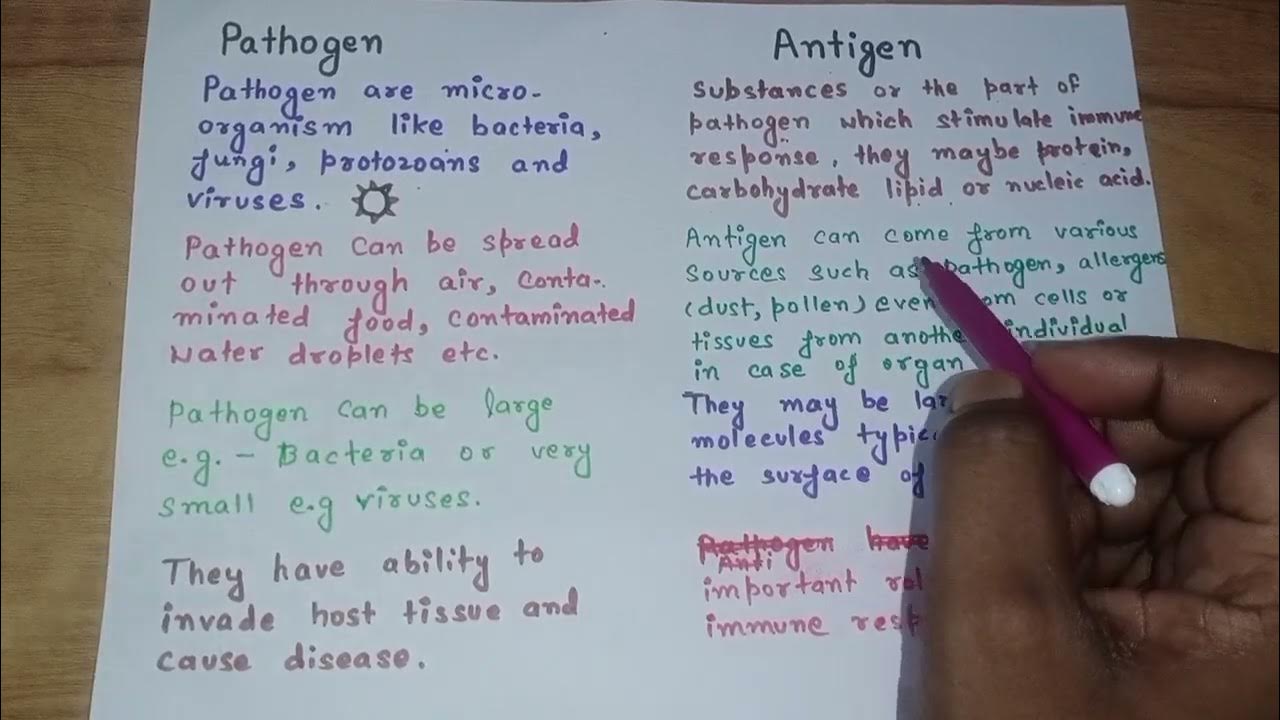 Pathogen
Pathogen are micro-
organism like bacteria,
fungi, protozoans and
viruses.
Pathogen can be spread
out through air, conta-
minated food, contaminated
water droplets etc.
Pathogen can be large
e.g. - Bacteria or very
small e.g viruses.
They have ability to
invade host tissue and
cause disease.
Antigen
Substances or the part of
pathogen which stimulate immune
response, they maybe protein,
carbohydrate lipid or nucleic acid.
Antigen can come from various
sources such as pathogen, allergens
(dust, pollen) even cells or
tissues from individual
in case of organ
They may be
molecules
the surface of
Pathogen have
Anti
important
immune